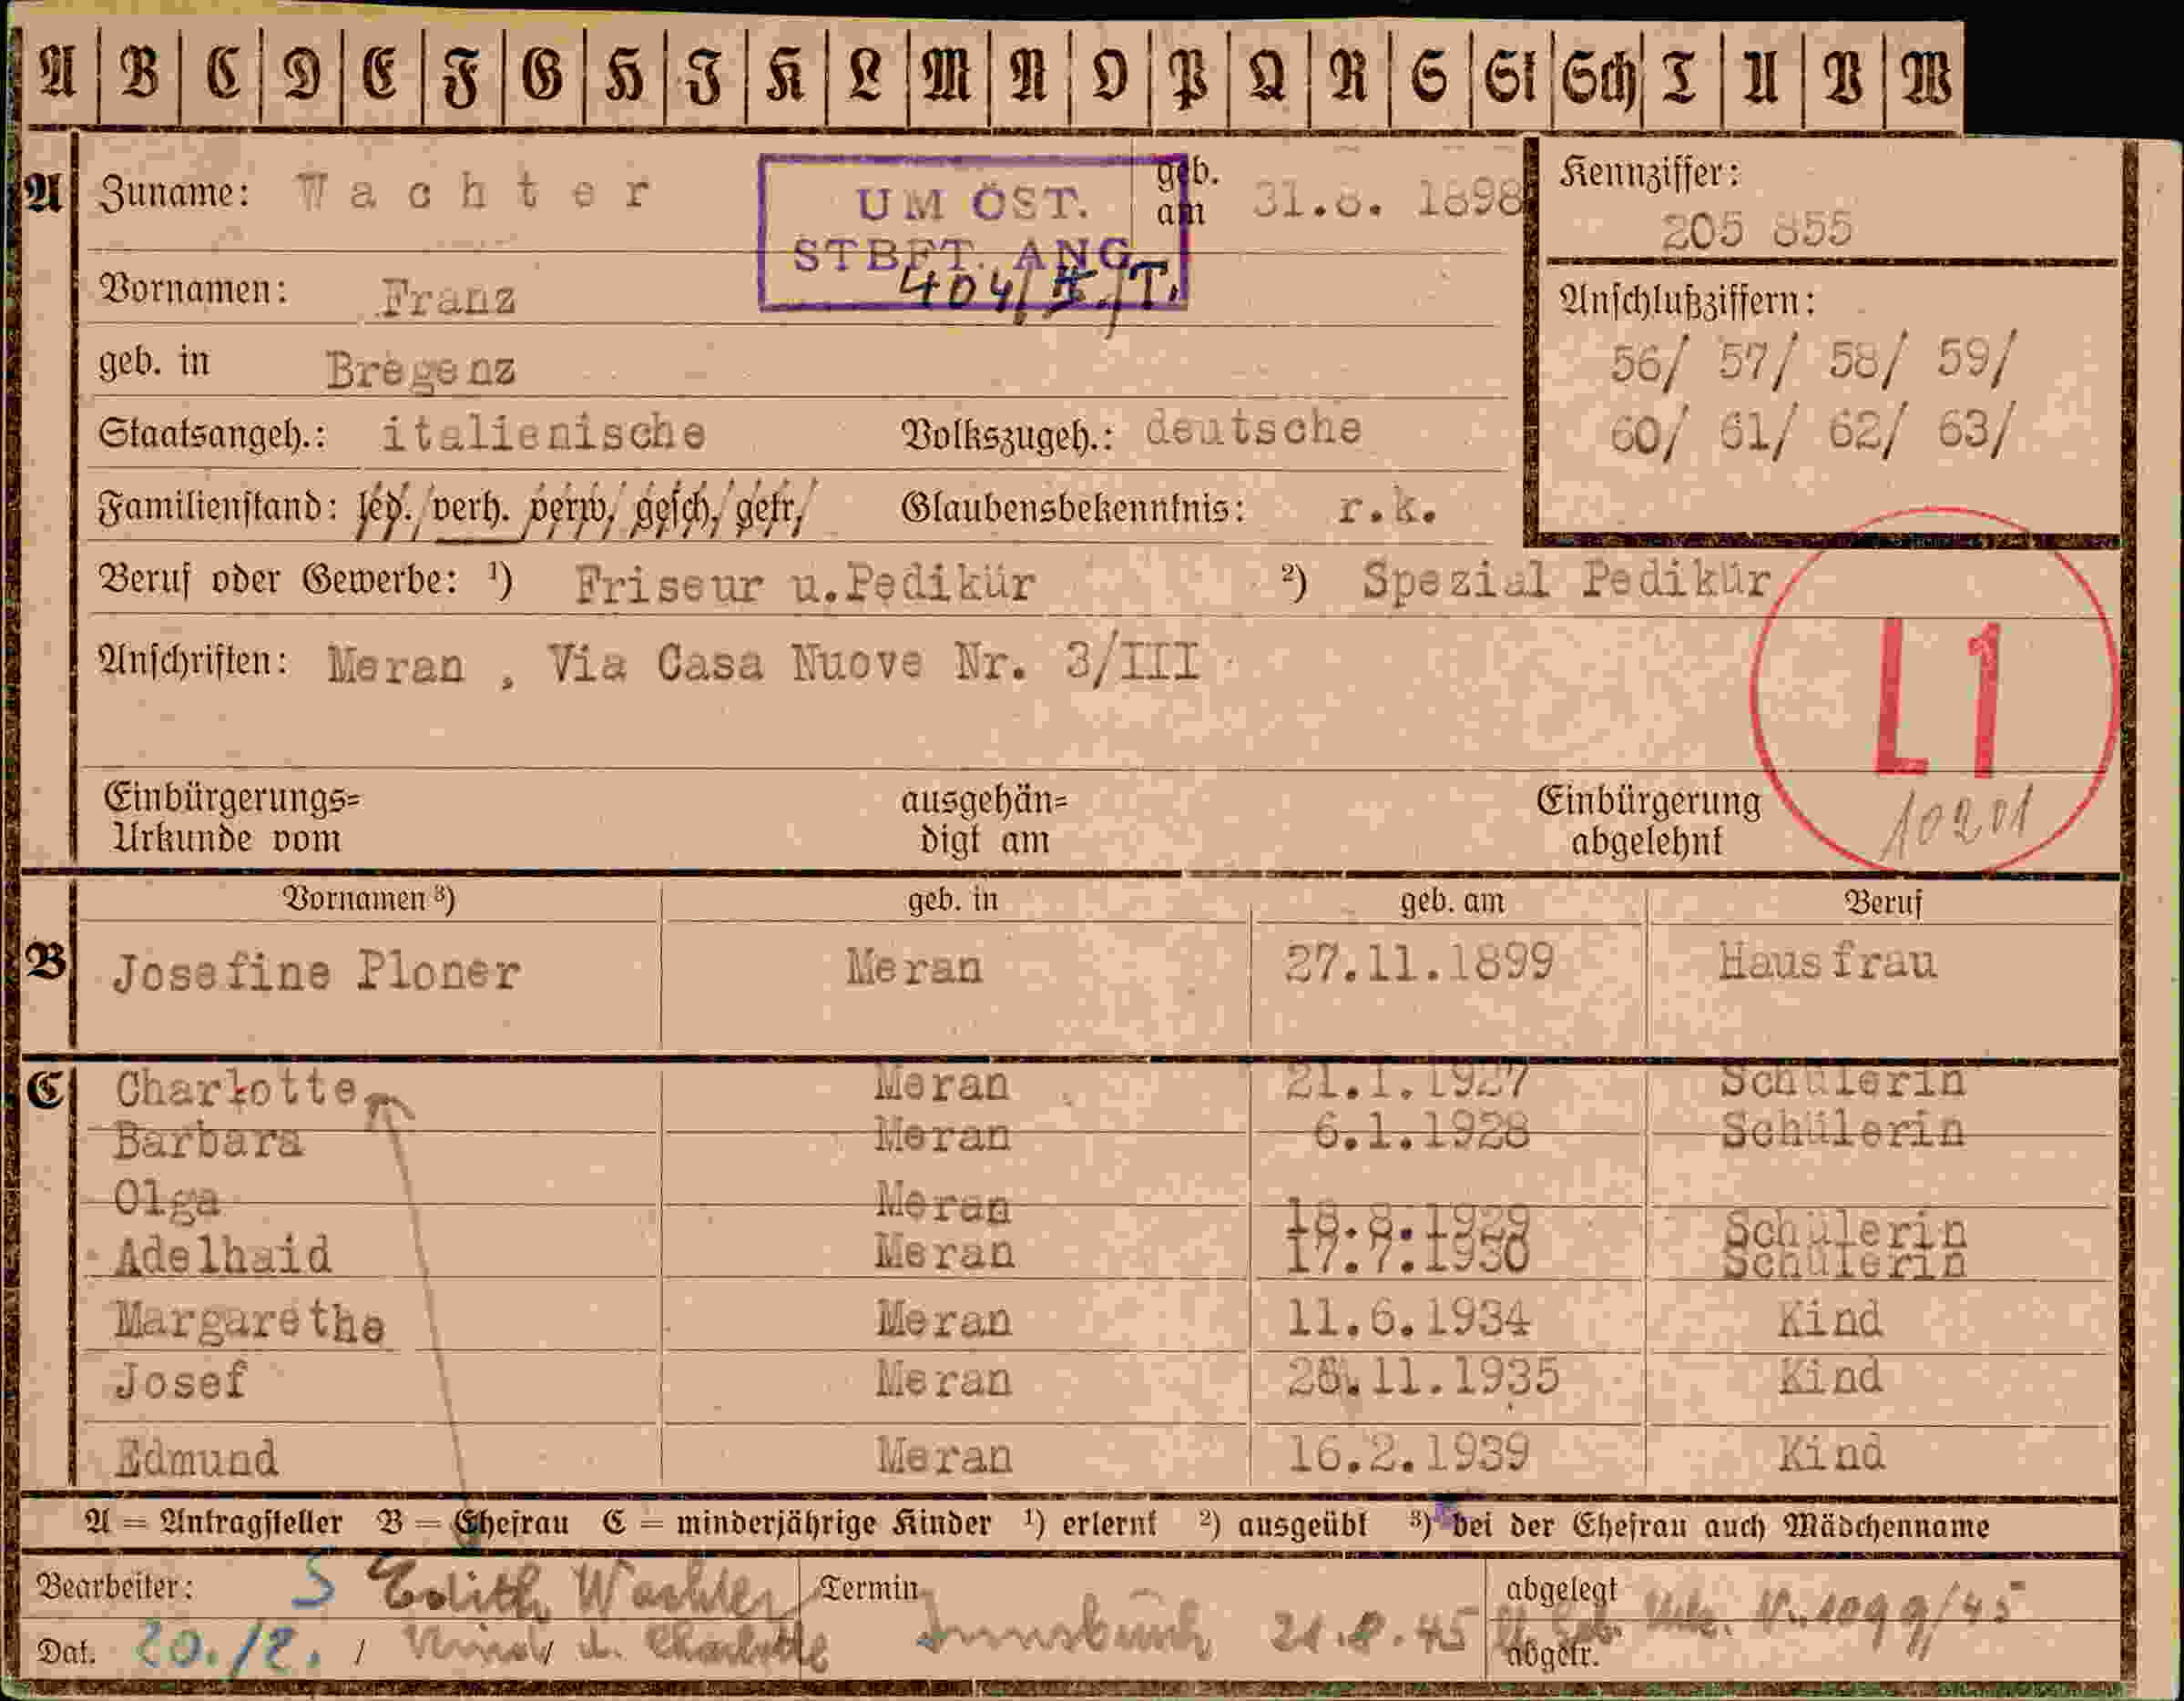 A B C D E F G H J K L M N O P Q R S St Sch T U V W
A Zuname: Wachter geb. am 31.8. 1898
UM ÖST.
STBFT. ANG.
404/ /T.
Kennziffer:
205 855
Vornamen: Franz
Anschlußziffern:
56/ 57/ 58/ 59/
60/ 61/ 62/ 63/
geb. in Bregenz
Staatsangeh.: italienische Volkszugeh.: deutsche
Familienstand: led. verh. verw. gesch. getr. Glaubensbekenntnis: r.k.
Beruf oder Gewerbe: ¹) Friseur u.Pedikür ²) Spezial Pedikür
Anschriften: Meran , Via Casa Nuove Nr. 3/III
L1
10201
Einbürgerungs= ausgehän= Einbürgerung
Urkunde vom digt am abgelehnt
Vornamen ³) geb. in geb. am Beruf
B Josefine Ploner Meran 27.11.1899 Hausfrau
C Charlotte Meran 21.1.1927 Schülerin
Barbara Meran 6.1.1928 Schülerin
Olga Meran 18.8.1929 Schülerin
Adelhaid Meran 17.7.1930 Schülerin
Margarethe Meran 11.6.1934 Kind
Josef Meran 28.11.1935 Kind
Edmund Meran 16.2.1939 Kind
A = Antragsteller B = Ehefrau C = minderjährige Kinder ¹) erlernt ²) ausgeübt ³) bei der Ehefrau auch Mädchenname
Bearbeiter: S Edith Wachter Termin abgelegt Urk. Nr. 1099/45
Dat. 20./2. / Kind d. Charlotte Innsbruck 21.8.45 lt. Geb. abgetr.